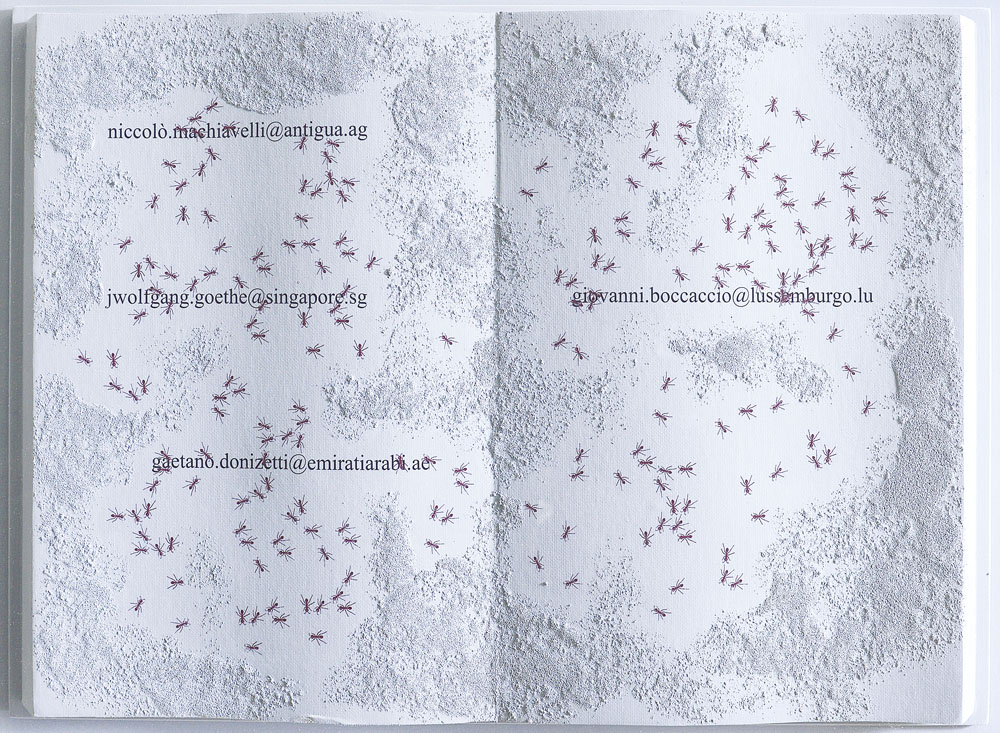 niccolò.machiavelli@antigua.ag
jwolfgang.goethe@singapore.sg
gaetano.donizetti@emiratiarabi.ae
giovanni.boccaccio@lussemburgo.lu